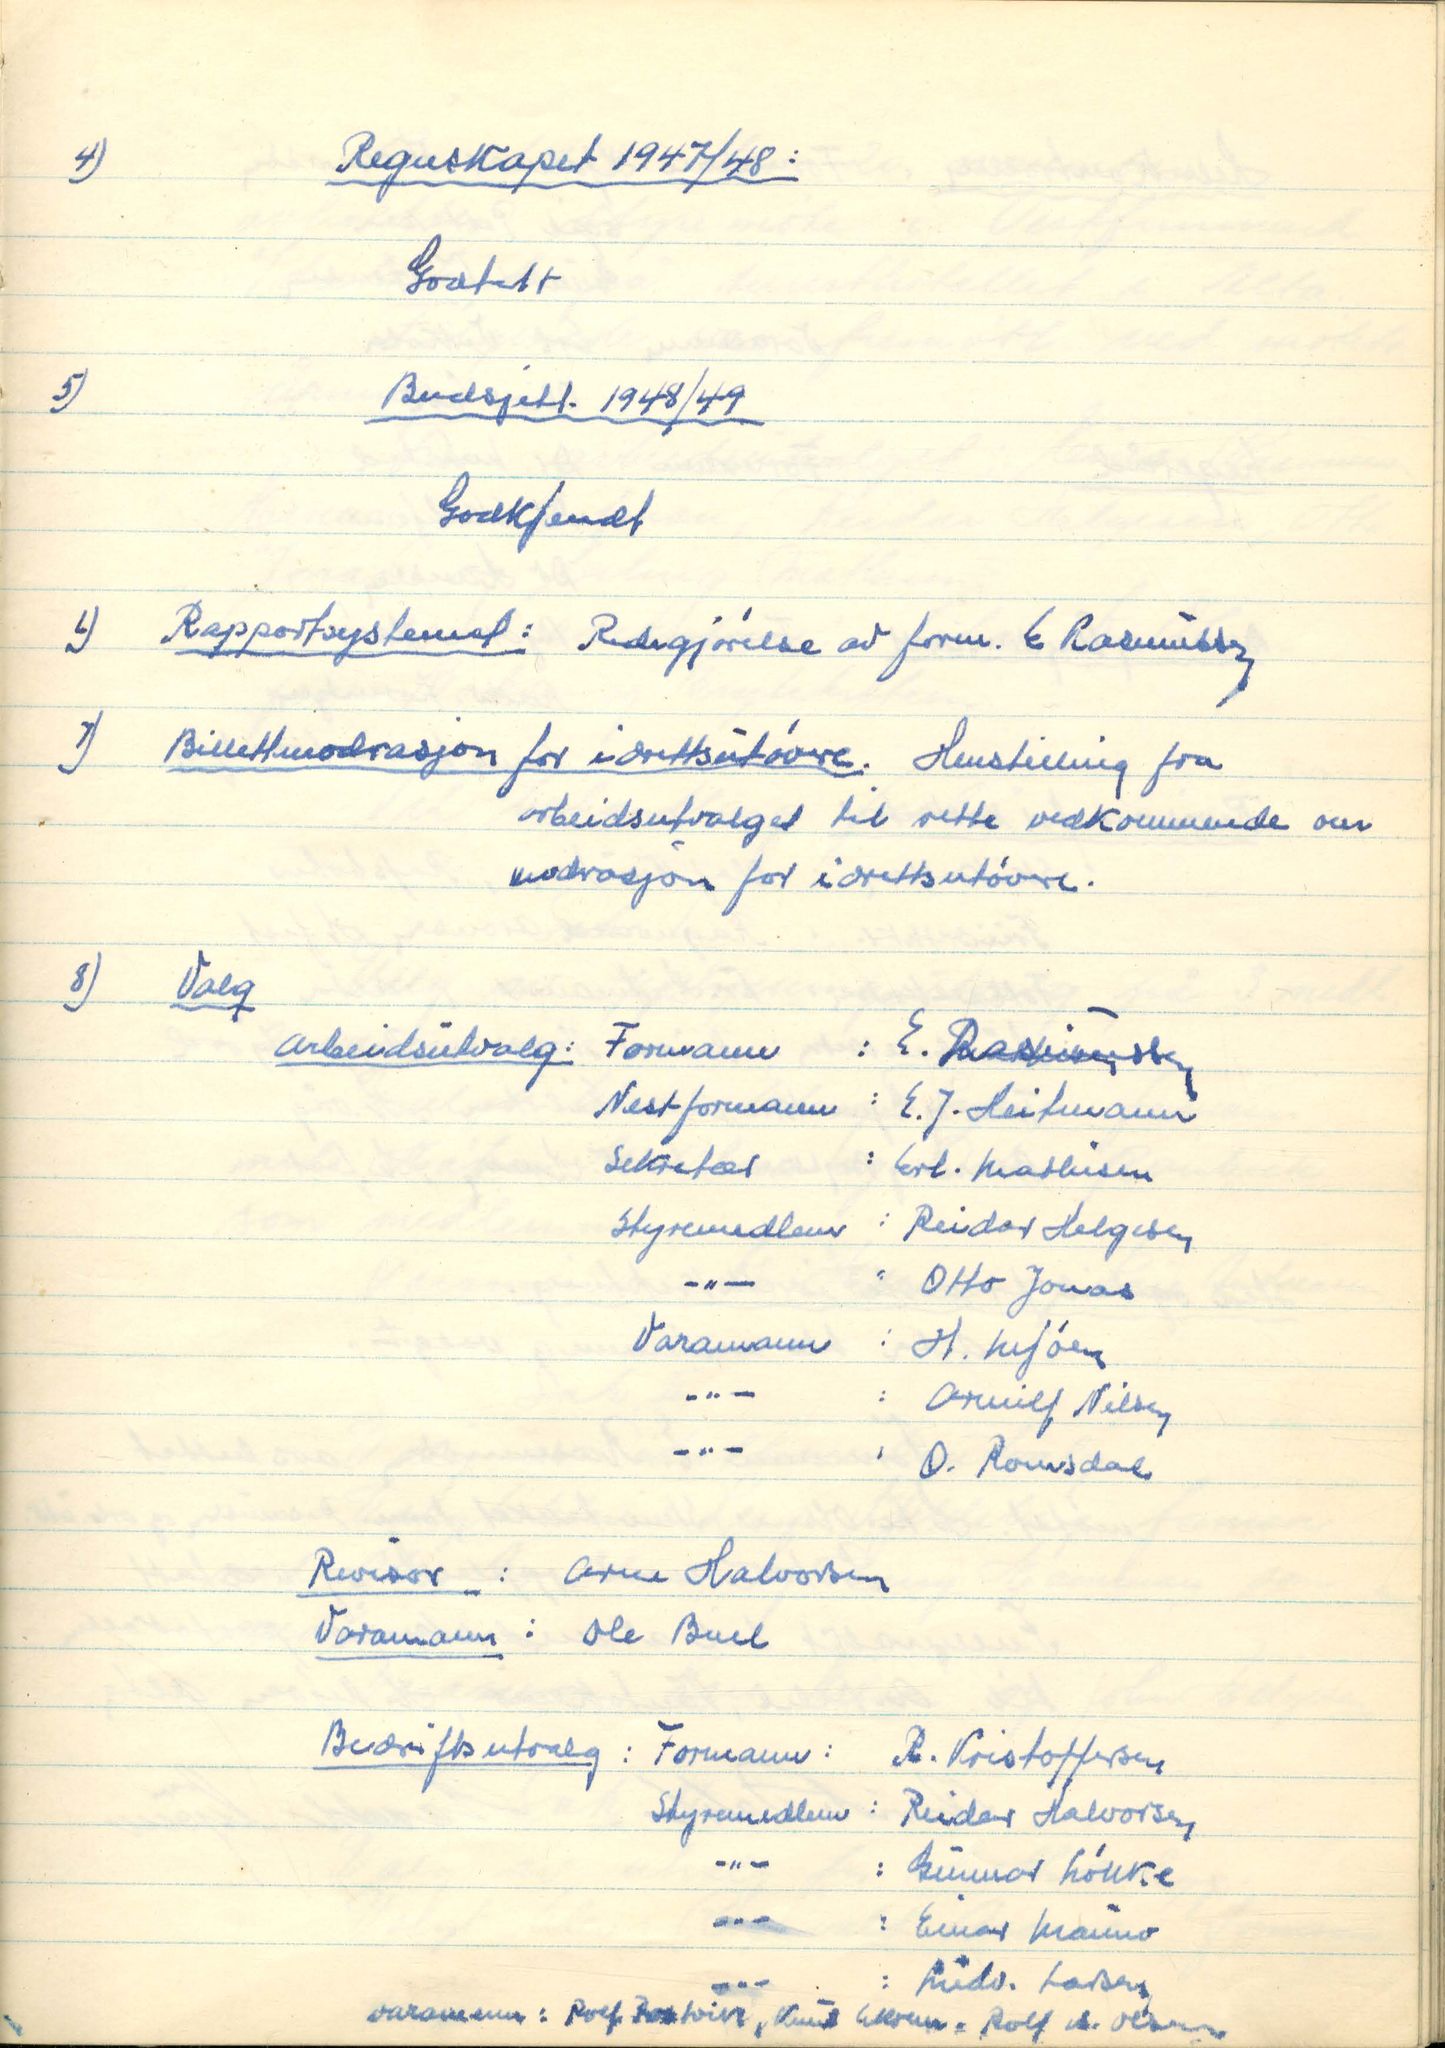 4) Regnskapet 1947/48:
Godtatt
5) Budsjett. 1948/49
Godkjendt
6) Rapportsystemet: Redegjörelse av form. E Rasmussen
7) Billettmodrasjon for idrettsutövere. Henstilling fra
arbeidsutvalget til rette vedkommende om
modrasjon for idrettsutövere.
8) Valg
Arbeidsutvalg: Formann : E. Rasmussen
Nestformann : E. J. Heitmann
Sekretær : Erl. Mathisen
Styremedlem : Reidar Helgesen
-"- " Otto Jonas
Varamann : H. Mjöen
-"- : Arnulf Nilsen
-"- : O. Romsdal
Revisor : Arne Halvorsen
Varamann : Ole Buel
Bedriftsutvalg : Formann : R. Kristoffersen
Styremedlem : Reidar Halvorsen
-"- : Gunnar Lökke
-"- : Einar Mauno
-"- : Ludv. Larsen
Varamenn : Rolf Knut Rolf A. Olsen